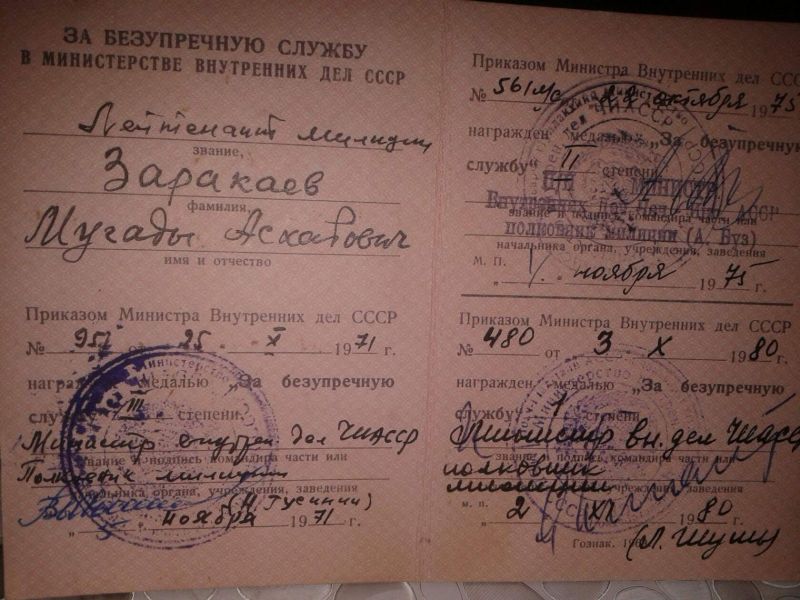 ЗА БЕЗУПРЕЧНУЮ СЛУЖБУ
В МИНИСТЕРСТВЕ ВНУТРЕННИХ ДЕЛ СССР
Лейтенант милиции
звание,
Заракаев
фамилия,
Мугады Асхатович
имя и отчество
Приказом Министра Внутренних дел СССР
№ 957 от 25 X 1971 г.
награжден медалью „За безупречную
службу" III степени
Министр внутрен дел ЧИАССР
звание и подпись командира части или
Полковник милиции
начальника органа, учреждения, заведения
ноября 1971 г.
Приказом Министра Внутренних дел СССР
№ 561 м/с октября 1975
награжден медалью „За безупречную
службу" II степени
Министр
Внутренних дел АССР
звание и подпись командира части или
полковник милиции (А. Буз)
начальника органа, учреждения, заведения
М. П.
1 ноября 1975 г.
Приказом Министра Внутренних дел СССР
№ 480 от 3 X 1980 г.
награжден медалью „За безупречную
службу" 1 степени
Министр вн. дел ЧИАССР
звание и подпись командира части или
полковник
милиции учреждения, заведения
м. п.
2 XI 1980 г.
Гознак.